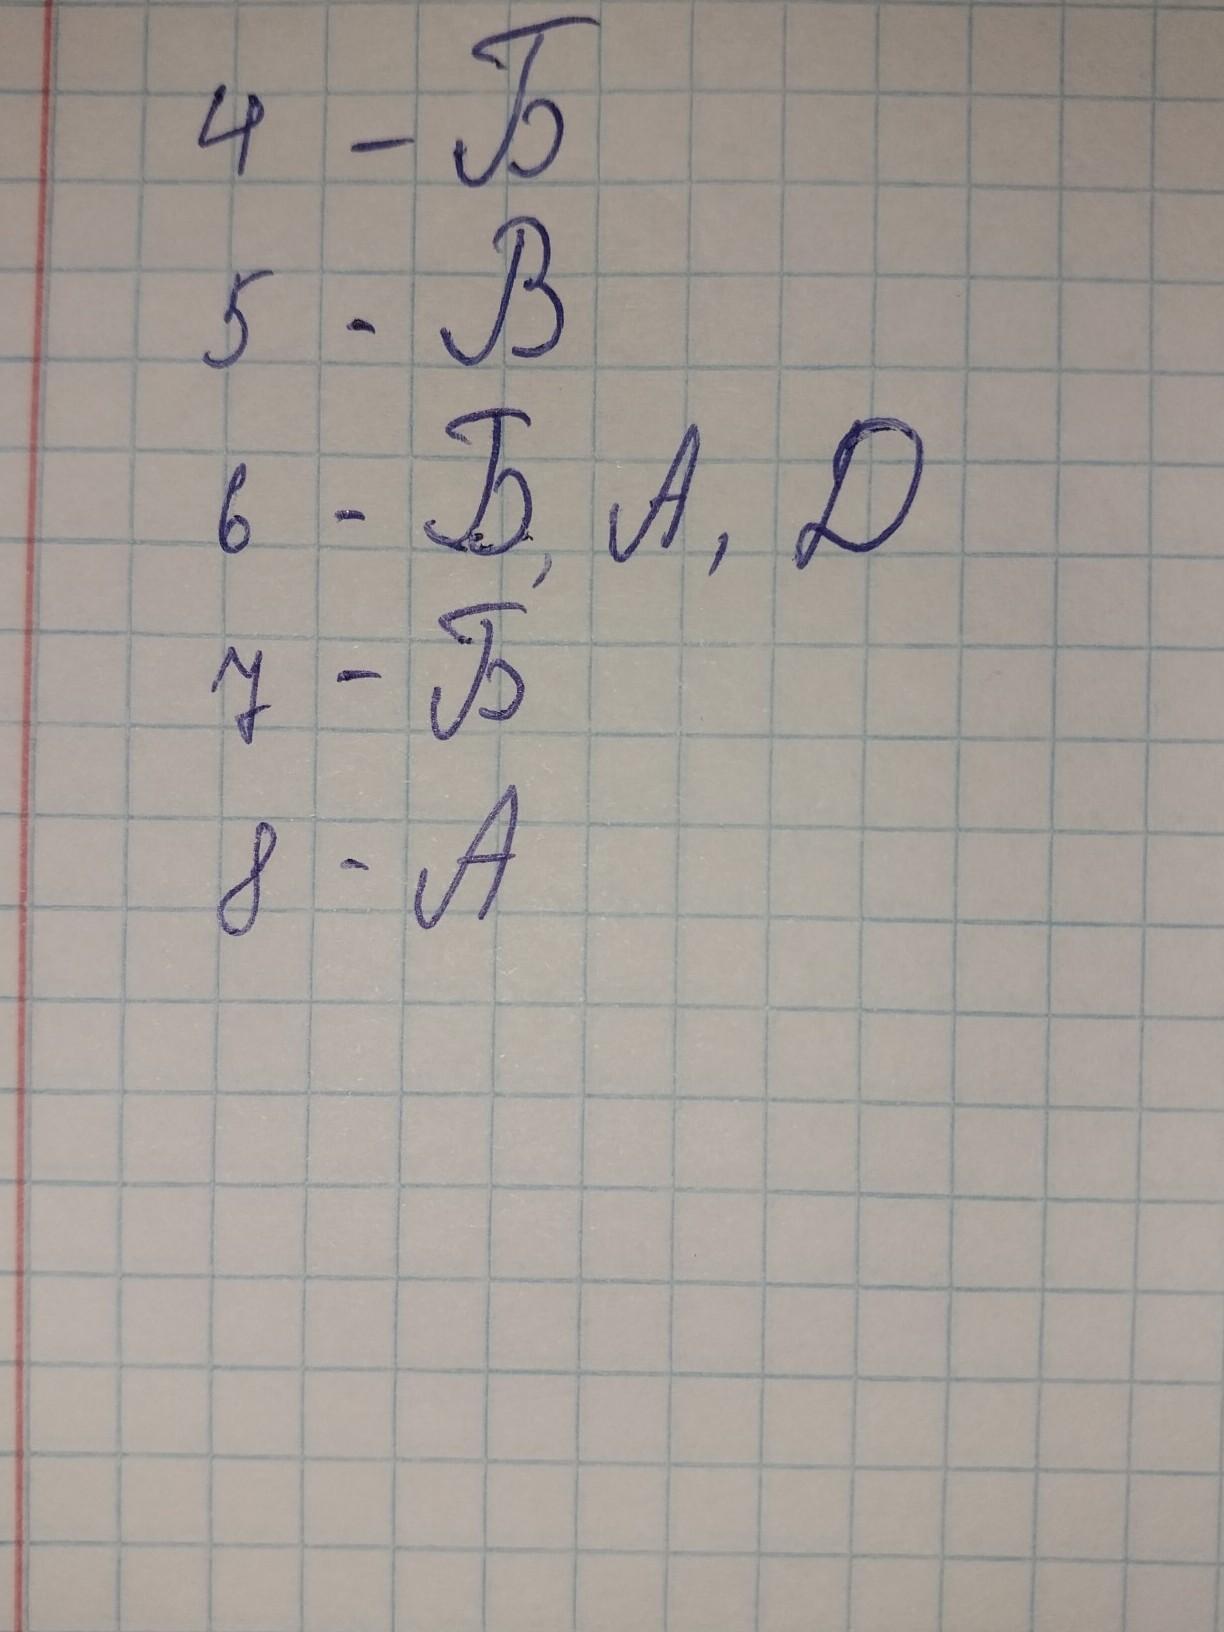 4 - Б
5 - В
6 - Б, А, D
7 - Б
8 - А